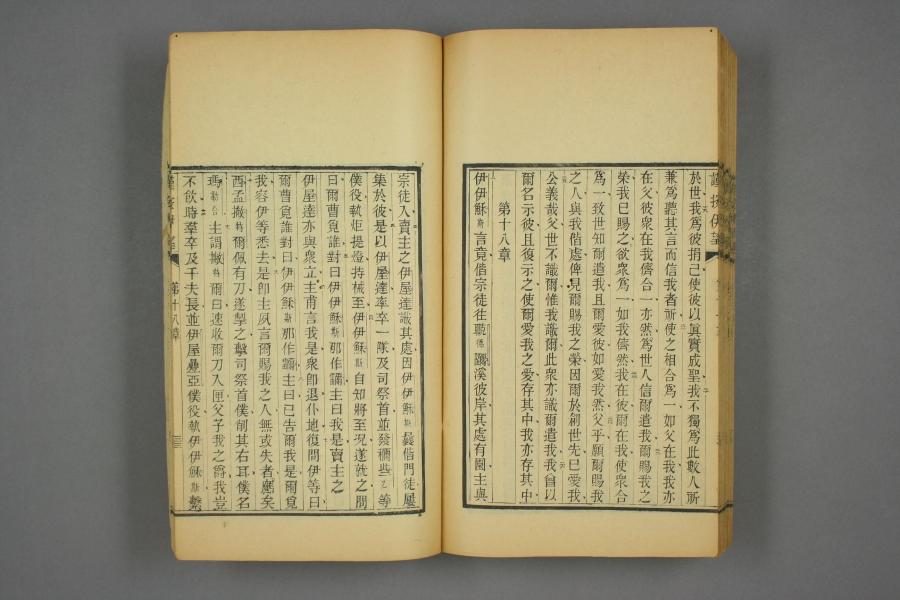 於世我爲彼捐己使彼以眞實成聖我不獨爲此數人所
兼爲聽其言而信我者祈使之相合爲一如父在我我亦
在父彼衆在我儕合一亦然爲世人信爾遣我爾賜我之
榮我已賜之欲衆爲一如我儕然我在彼爾在我使衆合
爲一致世知爾遣我且爾愛彼如愛我然父乎願爾賜我
之人與我偕處俾見爾賜我之榮因爾於創世先已愛我
公義哉父世不識爾惟我識爾此衆亦識爾遣我我曾以
爾名示彼且復示之使爾愛我之愛存其中我亦存其中
第十八章
伊伊穌斯言竟偕宗徒往 溪彼岸其處有園主與
宗徒入賣主之伊屋達識其處因伊伊穌斯曩偕門徒屢
集於彼是以伊屋達率卒一隊及司祭首並發 些乙等
僕役執炬提燈持械至伊伊穌斯自知將至況遂就之問
曰爾曹覓誰對曰伊伊穌斯那作 主曰我是賣主之
伊屋達亦與衆立主甫言我是衆卽退仆地復問伊等曰
爾曹覓誰對曰伊伊穌斯那作 主曰已吿爾我是爾覓
我容伊等悉去是卽主夙言爾賜我之人無或失者應矣
酉孟撤特爾佩有刀遂掣之擊司祭首僕削其右耳僕名
瑪勒合主謂撤特爾曰速收爾刀入匣父予我之爵我豈
不飲時羣卒及千夫長並伊屋疊亞僕役執伊伊穌斯繫
第十八章